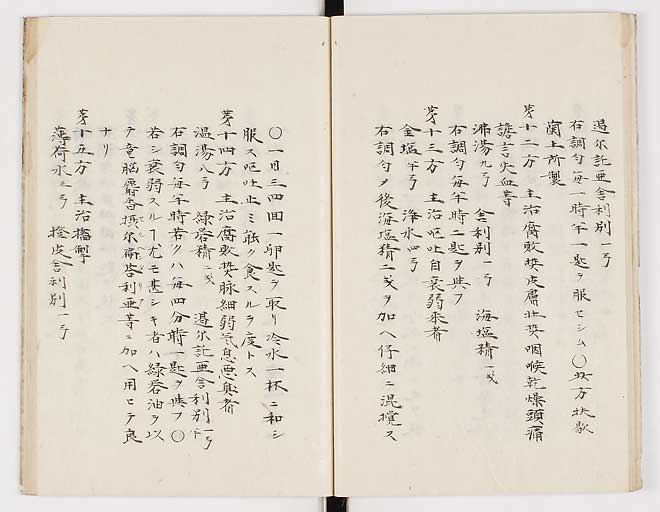 遏尓託亜舎利別一弓
右調匀毎一時半一匙ヲ服セシム〇此方
蘭上所製
第十二方 主治腐敗焚皮膚壮焚咽喉乾燥頭痛
譫言失血等
沸湯九弓 舎利別一弓 海塩精一戔
右調匀毎半時ニ匙ヲ與フ
第十三方 主治呕吐自衰弱来者
金塩半弓 浄水四弓
右調匀ノ後海塩精二戔ヲ加ヘ仔細ニ混攪ス
〇一日三四回一卵匙ヲ取リ冷水一杯ニ和シ
服ス呕吐止ミ能ク食スルヲ度トス
第十四方 主治腐敗焚脉細弱气息悪臭者
温湯八弓 緑礬精二戔 遏尓託亜舎利別半弓
右調匀毎半時若クハ毎四分時一匙ヲ與フ〇
若シ衰弱スルヿ尤モ甚シキ者ハ緑礬油ヲ以
テ竜脳麝香攝尓 利亜等ニ加ヘ用ヒテ良
ナリ
第十五方 主治
薄荷水二弓 橙皮舎利別一弓